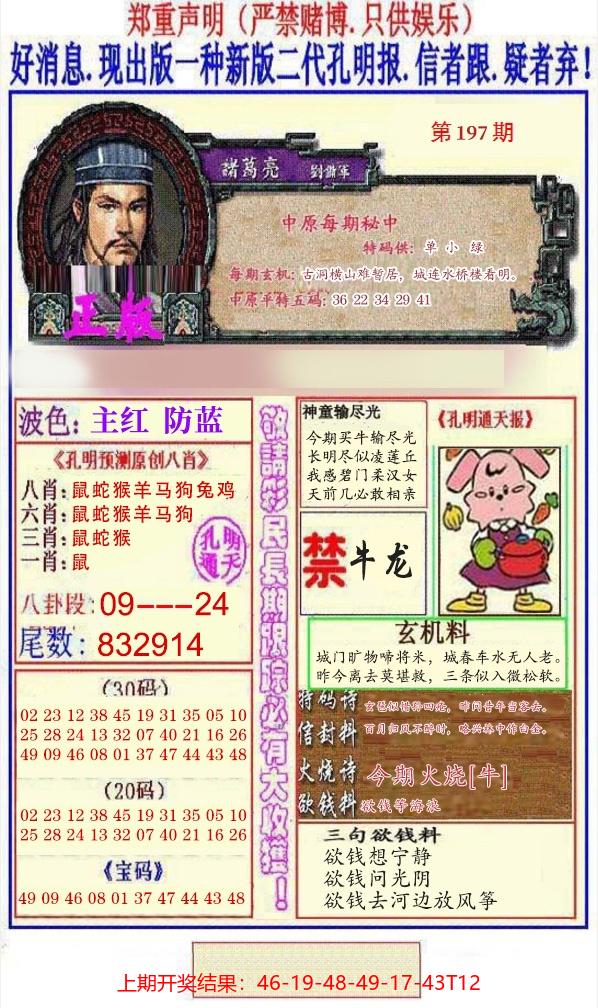 郑重声明（严禁赌博.只供娱乐）
好消息.现出版一种新版二代孔明报.信者跟.疑者弃!
第197期
諸葛亮 劉備軍
中原每期秘中
特码供：单 小 绿
每期玄机：古洞横山难暂居，城连水桥楼看明。
中原平特五码：36 22 34 29 41
正版
波色：主红 防蓝
《孔明预测原创八肖》
八肖：鼠蛇猴羊马狗兔鸡
六肖：鼠蛇猴羊马狗
三肖：鼠蛇猴
一肖：鼠
孔明
通天
八卦段：09---24
尾数：832914
（30码）
02 23 12 38 45 19 31 35 05 10
25 28 24 13 32 07 40 21 16 26
49 09 46 08 01 37 47 44 43 48
（20码）
02 23 12 38 45 19 31 35 05 10
25 28 24 13 32 07 40 21 16 26
《宝码》
49 09 46 08 01 37 47 44 43 48
敬請彩民長期跟踪必有大收獲！
神童输尽光
今期买牛输尽光
长明尽似凌莲丘
我感碧门柔汉女
天前几必敢相亲
《孔明通天报》
禁牛龙
玄机料
城门旷物啼将米，城春车水无人老。
昨今离去莫堪救，三条似入微松软。
特码诗
信封料 百月归风不醉时，略兴林中作白金。
火烧诗 今期火烧[牛]
欲钱料 欲钱等海浪
三句欲钱料
欲钱想宁静
欲钱问光阴
欲钱去河边放风筝
上期开奖结果：46-19-48-49-17-43T12